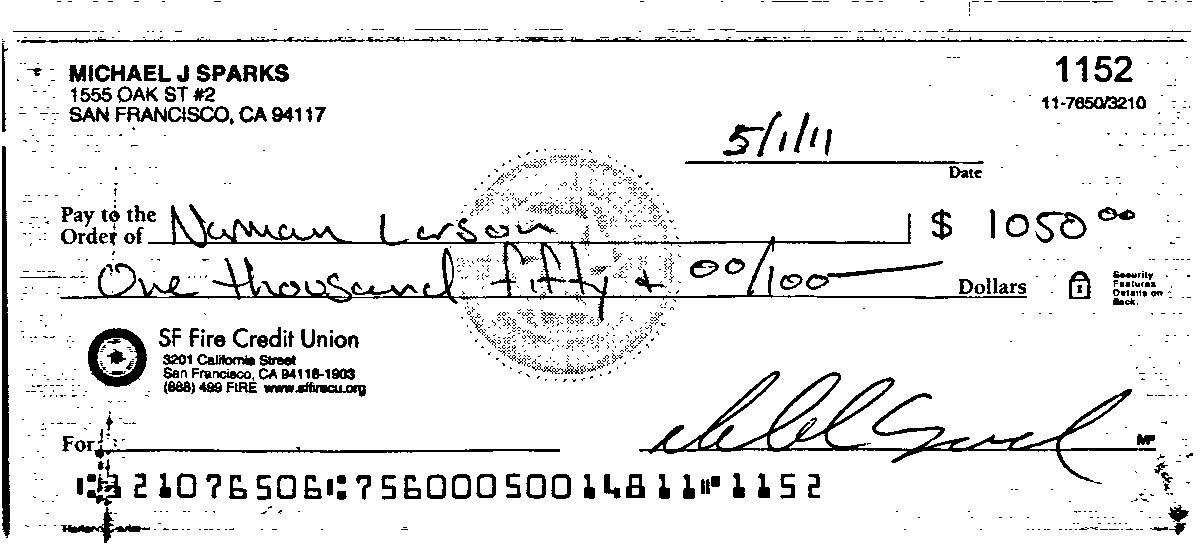 MICHAEL J SPARKS
1555 OAK ST #2
SAN FRANCISCO, CA 94117
1152
11-7650/3210
5/1/11
Date
Pay to the
Order of Naman Larson $ 1050 00
One thousand fifty + 00/100 Dollars
Security
Features
Details on
Back.
SF Fire Credit Union
3201 California Street
San Francisco, CA 94118-1903
(888) 499 FIRE www.sffirecu.org
For
MP
⑆321076506⑆7560005001481 1⑈1152